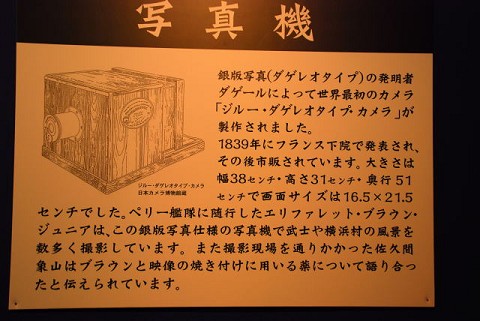 写真機
銀版写真(ダゲレオタイプ)の発明者
ダゲールによって世界最初のカメラ
「ジルー・ダゲレオタイプ・カメラ」が
製作されました。
1839年にフランス下院で発表され、
その後市販されています。大きさは
幅38センチ・高さ31センチ・奥行51
センチで画面サイズは16.5×21.5
センチでした。ペリー艦隊に随行したエリファレット・ブラウン・
ジュニアは、この銀版写真仕様の写真機で武士や横浜村の風景を
数多く撮影しています。また撮影現場を通りかかった佐久間
象山はブラウンと映像の焼き付けに用いる薬について語り合っ
たと伝えられています。
ジルー・ダゲレオタイプ・カメラ
日本カメラ博物館蔵